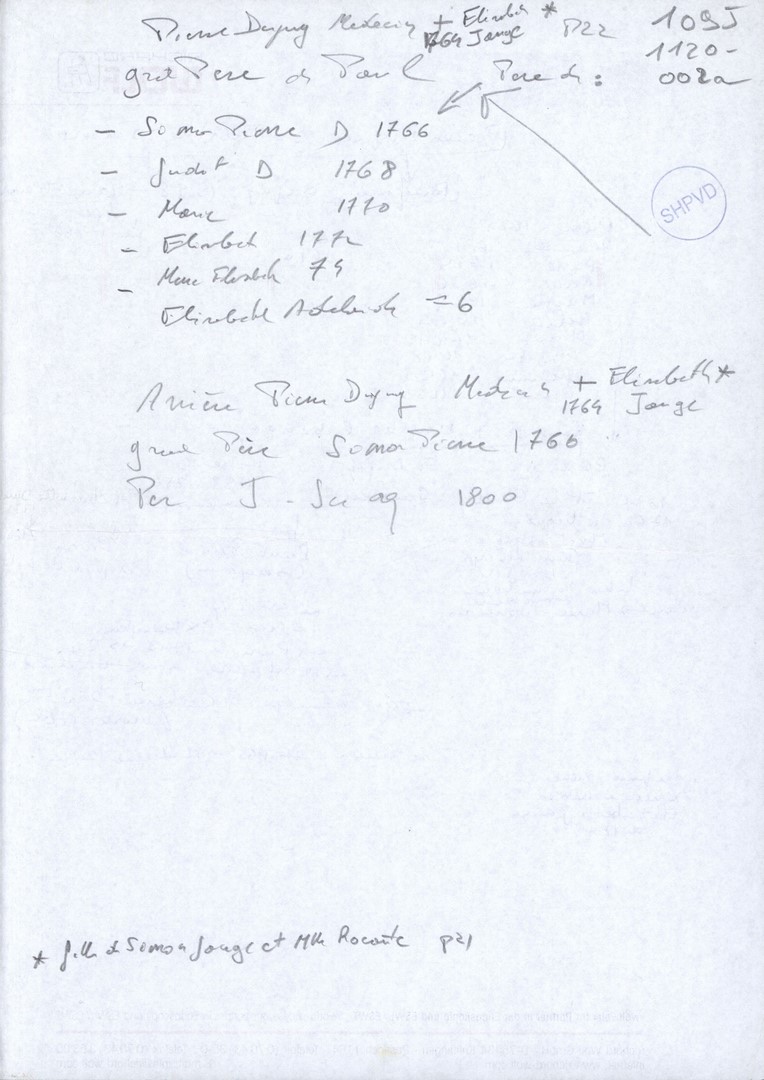 Pierre Dupuy Medecin + Elisabeth * P22
1764 Jauge
109J
1120-
002a
grd Père de Paul Père de :
- Simon Pierre D 1766
- Judit D 1768
- Marie 1770
- Elisabeth 1772
- Marie Elisabeth 74
Elisabeth = 6
SHPVD
Arrière Pierre Dupuy Medecin + Elisabeth *
1764 Jauge
grand Père Simon Pierre 1766
Per J - 1800
* fille de Simon Jauge et Mlle Rocaute p21